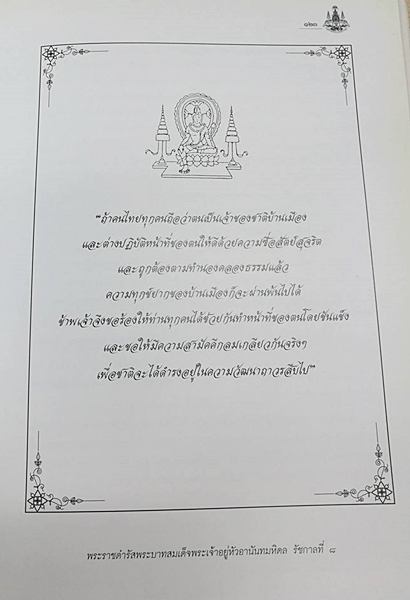 ๑๒๓
"ถ้าคนไทยทุกคนถือว่าตนเป็นเจ้าของชาติบ้านเมือง
และต่างปฏิบัติหน้าที่ของตนให้ดีด้วยความซื่อสัตย์สุจริต
และถูกต้องตามทำนองคลองธรรมแล้ว
ความทุกข์ยากของบ้านเมืองก็จะผ่านพ้นไปได้
ข้าพเจ้าจึงขอร้องให้ท่านทุกคนได้ช่วยกันทำหน้าที่ของตนโดยขันแข็ง
และขอให้มีความสามัคคีกลมเกลียวกันจริงๆ
เพื่อชาติจะได้ดำรงอยู่ในความวัฒนาถาวรสืบไป"
พระราชดำรัสพระบาทสมเด็จพระเจ้าอยู่หัวอานันทมหิดล รัชกาลที่ ๘